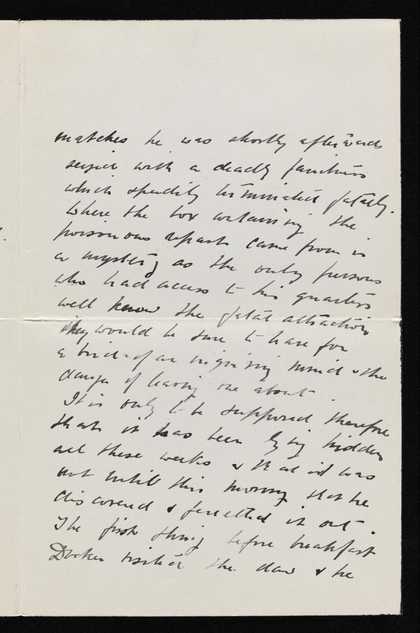 matches he was shortly afterwards
seized with a deadly faintness
which speedily terminated fatally.
Where the box containing the
poisonous repast came from is
a mystery as the only persons
who had access to his quarters
well know the fatal attraction
they would be sure to have for
a bird of an inquiring mind & the
danger of leaving one about.
It is only to be supposed therefore
that it has been lying hidden
all these weeks & that it was
not until this morning that he
discovered & ferretted it out.
The first thing before breakfast
visited the daw & he